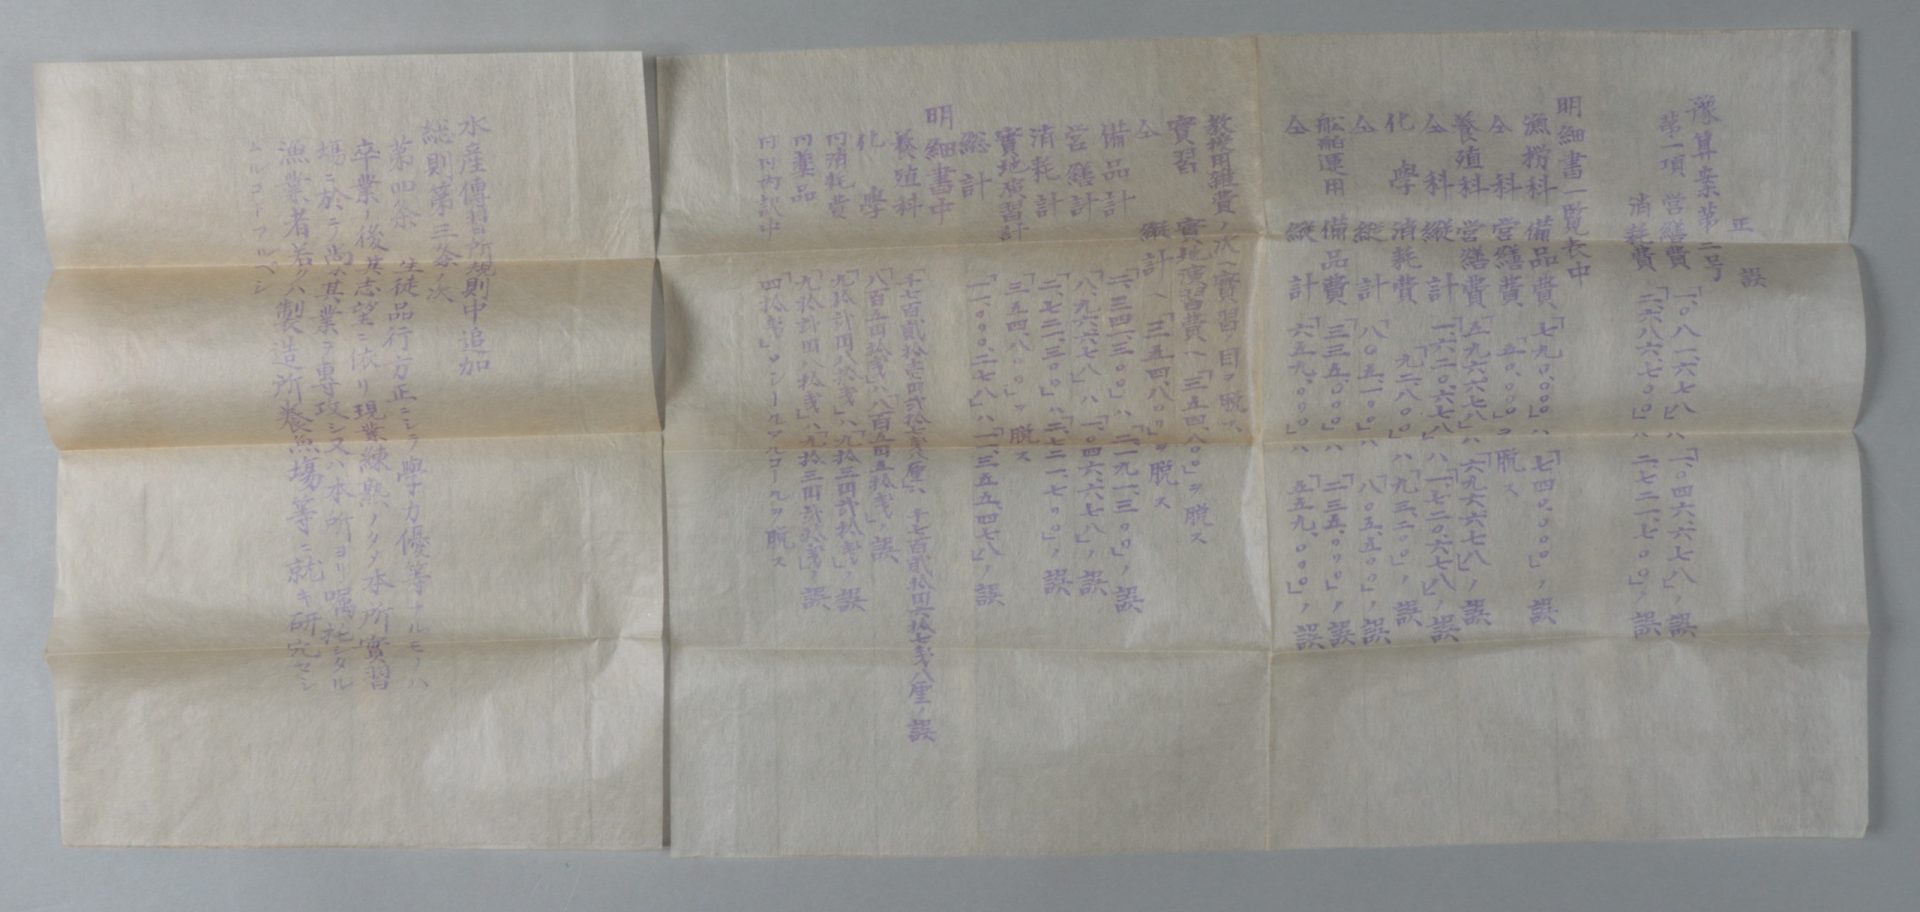 正誤
豫算案第二号
第一項 営繕費 「一、〇八一、六七八」ハ「一、〇四六、六七八」ノ誤
消耗費 「二、六八六、七〇〇」ハ「二、七二一、七〇〇」ノ誤
明細書一覧表中
漁撈科 備品費 「七九〇、〇〇〇」ハ「七四〇、〇〇〇」ノ誤
仝科 営繕費 「五〇、〇〇〇」ヲ脱ス
養殖科 営繕費 「五九六、六七八」ハ「六九六、六七八」ノ誤
仝科 縦計 「一、六二〇、六七八」ハ「一、七二〇、六七八」ノ誤
化學 消耗費 「九二、八〇〇」ハ「九三、二〇〇」ノ誤
仝 縦計 「八〇五、一〇〇」ハ「八〇五、五〇〇」ノ誤
船舶運用 備品費 「三三五、〇〇〇」ハ「二三五、〇〇〇」ノ誤
仝 縦計 「六五九、〇〇〇」ハ「五五九、〇〇〇」ノ誤
教授用雑費ノ次ヘ「實習」ノ目ヲ脱ス
實習 實地演習費ヘ「三五四、八〇〇」ヲ脱ス
仝 縦計ヘ「三五四、八〇〇」ヲ脱ス
備品計 「二、三四一、三〇〇」ハ「二、一九一、三〇〇」ノ誤
営繕計 「八九六、六七八」ハ「一、〇四六、六七八」ノ誤
消耗計 「二、七二一、三〇〇」ハ「二、七二一、七〇〇」ノ誤
實地演習計 「三五四、八〇〇」ヲ脱ス
総計 「一一、〇〇〇、二七八」ハ「一一、三五五、四七八」ノ誤
明細書中
養殖科 「千七百貳拾壱円弐拾七戔八厘」ハ「千七百貳拾円六拾七戔八厘」ノ誤
化學 「八百五円拾戔」ハ「八百五円五拾戔」ノ誤
付消耗費 「九拾弐円八拾戔」ハ「九拾三円弐拾戔」ノ誤
付薬品 「九拾弐円八拾戔」ハ「九拾三円弐拾戔」ノ誤
付付内訳中 「四拾戔」メシールアルコールヲ脱ス
水産傳習所規則中追加
総則第三条ノ次
第四条 生徒品行方正ニシテ學力優等ナルモノハ
卒業ノ後其志望ニ依リ現業練熟ノタメ本所實習
場ニ於テ尚其業ヲ専攻シ又ハ本所ヨリ嘱托シタル
漁業者若クハ製造所養魚場等ニ就キ研究セシ
ムルコトアルベシ